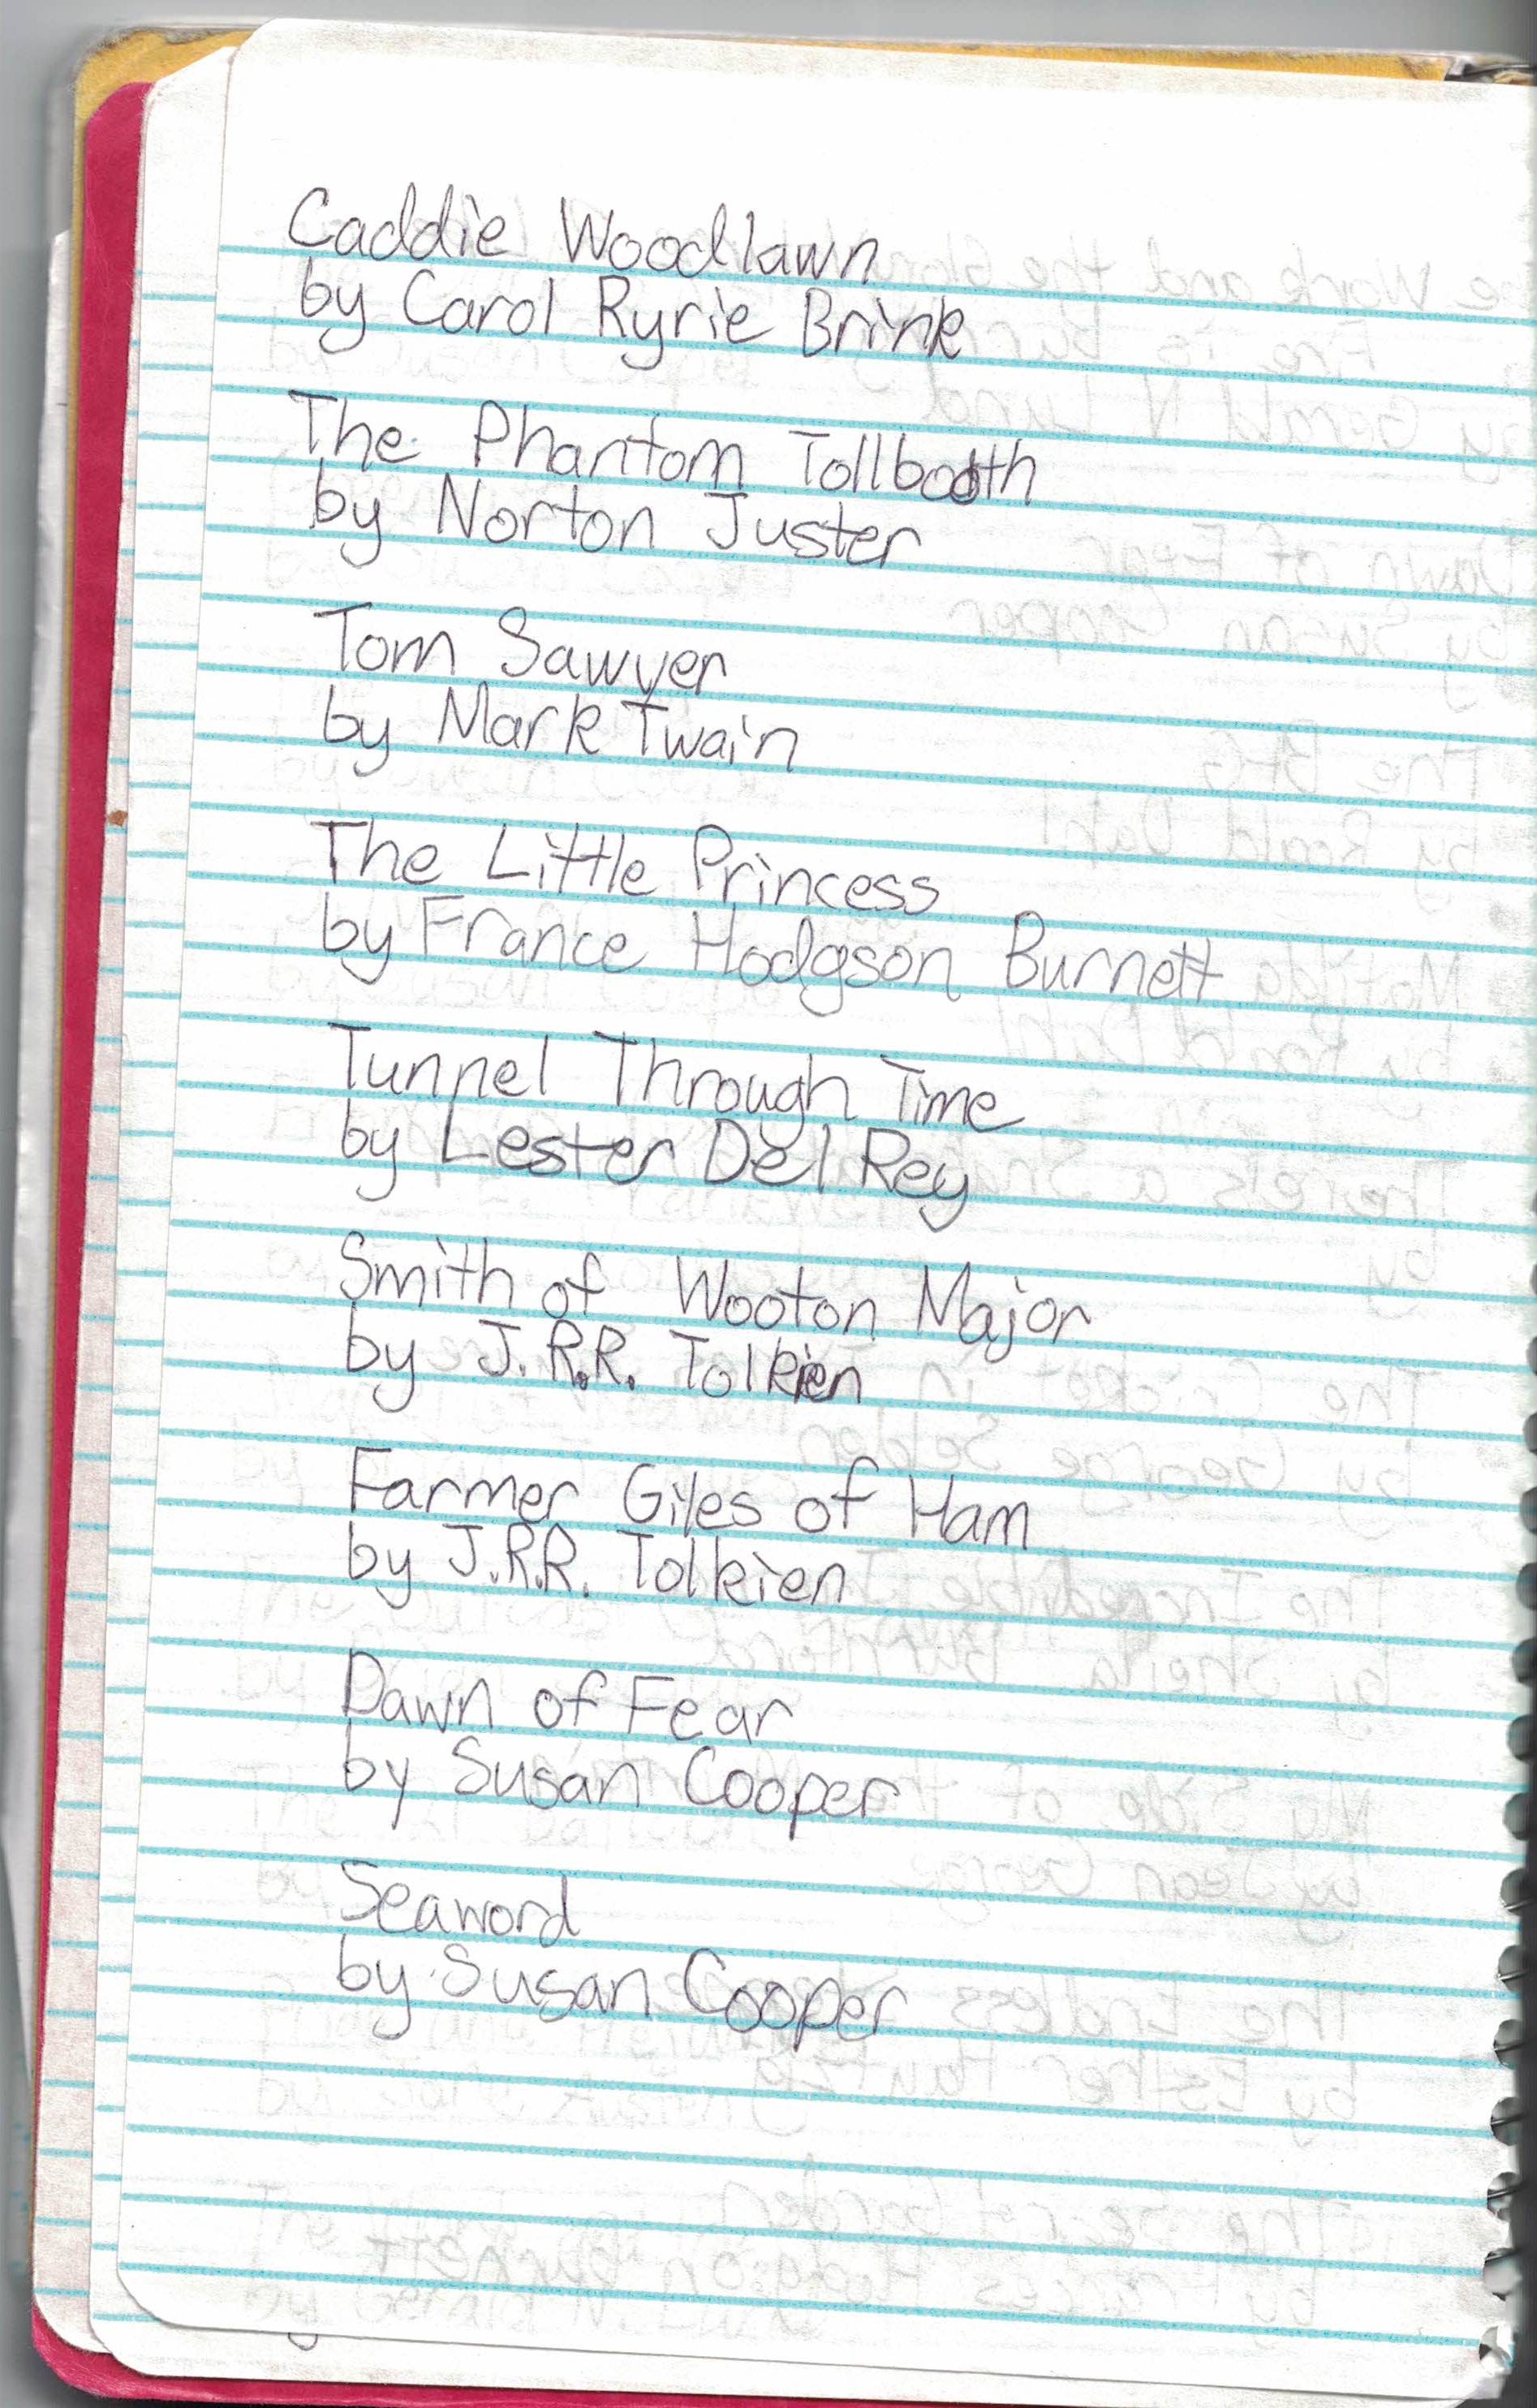 Caddie Woodlawn
by Carol Ryrie Brink
The Phantom Tollbooth
by Norton Juster
Tom Sawyer
by Mark Twain
The Little Princess
by France Hodgson Burnett
Tunnel Through Time
by Lester Del Rey
Smith of Wooton Major
by J.R.R. Tolkien
Farmer Giles of Ham
by J.R.R. Tolkien
Dawn of Fear
by Susan Cooper
Seaword
by Susan Cooper